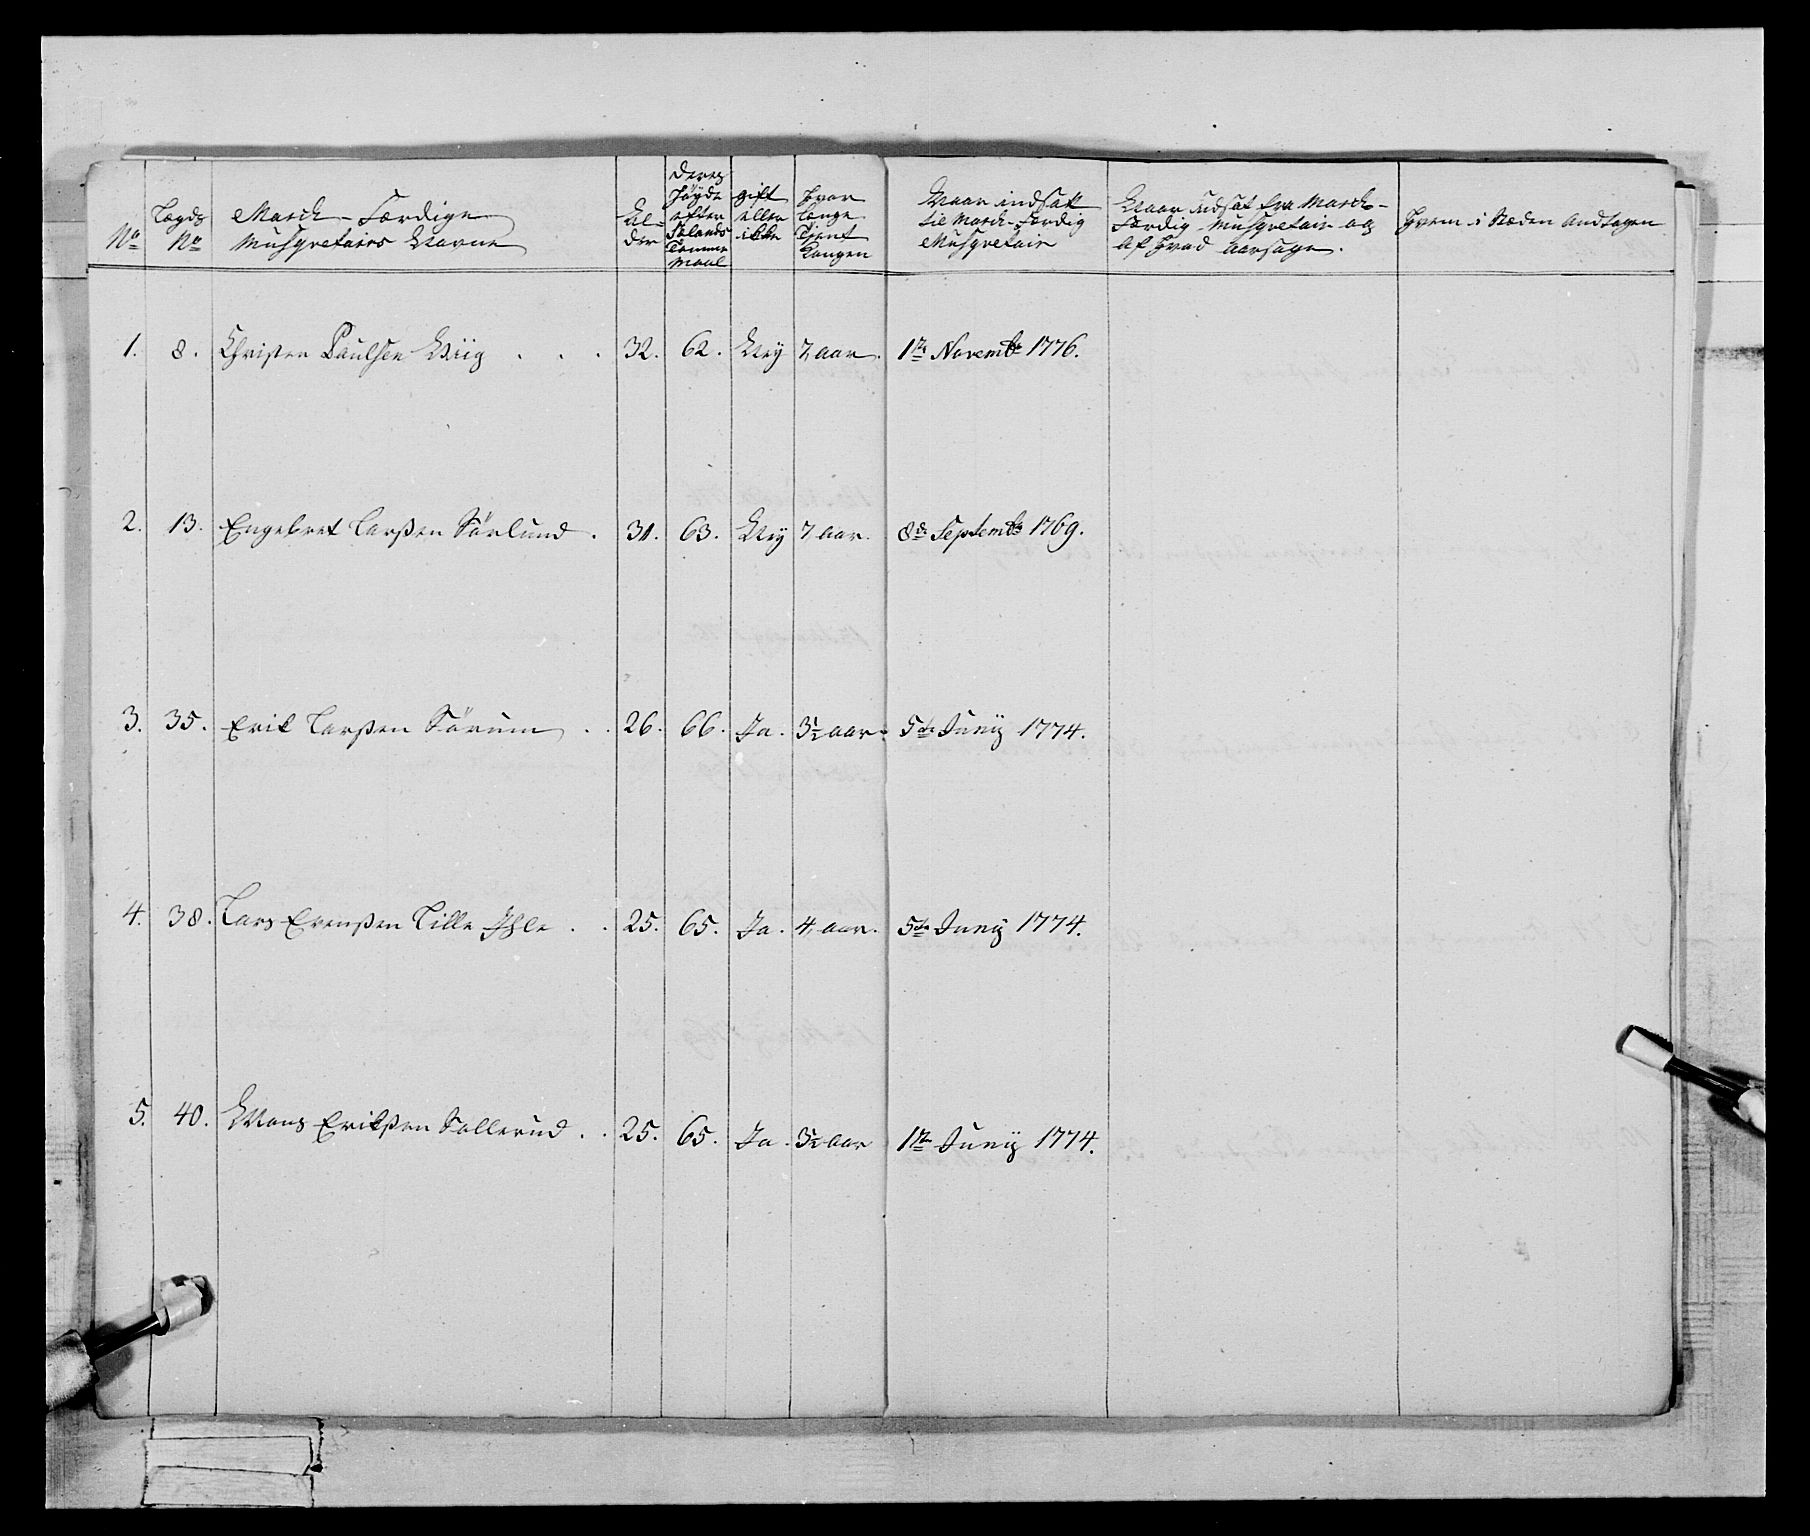 No
Lægds No
March-Færdige Musqvetairs Navne
Al- der
Deres Høyde efter Siælands Tomme Maal
gift eller ikke
Hvor længe Tient Kongen
Naar indsat til March-Færdig Musqvetair
Naar udsat fra March-Færdig Musqvetair og af hvad Aarsage.
Hvem i Stæden Andtagen
1. 8. Christen Paulsen Wiig . . . 32. 62. Ney 7 aar. 1te Novembr 1776.
2. 13. Engebret Larsen Sörlund . 31. 63. Ney 7 aar. 8de Septembr 1769.
3. 35. Erik Larsen Sörum . . 26. 66. Ja. 3½ aar. 5te Juny 1774.
4. 38. Lars Evensen Lille Ihle . . 25. 65. Ja. 4 aar. 5te Juny 1774.
5. 40. Mons Eriksen Sollerud . . 25. 65. Ja. 3½ aar 1te Juny 1774.